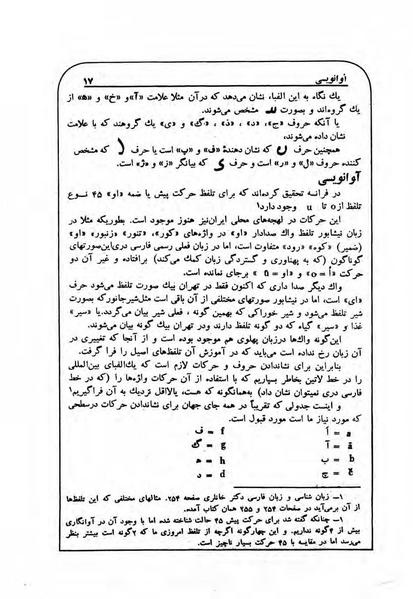 آوانویسی ۱۷
یک نگاه به این الفباء نشان می‌دهد که در آن مثلا علامت «آ»و «خ» و «ه» از
یک گروه‌اند و بصورت مشخص می‌شوند.
یا آنکه حروف «ج»، «د»، «ذ»، «گ» و «ی» یک گروهند که با علامت
نشان داده می‌شوند،
همچنین حرف که نشان دهندهٔ «ف» و «پ» است یا حرف که مشخص
کننده حروف «ل» و «ر» است و حرف که بیانگر «ز» و «ژ» است.
آوانویسی
در فرانسه تحقیق کرده‌اند که برای تلفظ حرکت پیش یا ضمه «او» ۴۵ نوع
تلفظ از o تا u وجود دارد۱
این حرکات در لهجه‌های محلی ایران‌نیز هنوز موجود است. بطوریکه مثلا در
زبان نیشابور تلفظ واك صدادار «او» در واژه‌های «کور»، «تنور» «زنبور» «او
(ضمیر) «کوه» «رود» متفاوت است، اما در زبان فعلی رسمی فارسی دری‌این‌صورتهای
گوناگون (که به پهناوری و گستردگی زبان کمك می‌کند) برافتاده و غیر آن دو
حرکت «اُ = o» و «او = ū» برجای نمانده است.
واك دیگر صدا داری که اکنون فقط در تهران بیك صورت تلفظ می‌شود حرف
«ای» است، اما در نیشابور صورتهای مختلفی از آن باقی است مثل‌شیرجانورکه بصورت
شیر تلفظ می‌شود و شیر خوراکی که بهمین گونه ، فعل شیر بیان می‌گردد.یا «سیر»
غذا و «سیر» گیاه که دو گونه تلفظ دارند ودر تهران بیك گونه بیان می‌شوند.
این‌گونه واك‌ها درزبان پهلوی هم موجود بوده است و از آنجا که تغییری در
آن زبان رخ نداده است می‌باید که در آموزش آن تلفظ‌های اصیل را فرا گرفت.
بنابراین برای نشاندادن حروف و حرکات لازم است که الفبای بین‌المللی
را در خط لاتین بخاطر بسپاریم که با استفاده از آن حرکات واژه‌ها را (که در خط
فارسی دری نمیتوان نشان داد) به‌همانگونه که هست، یالااقل نزدیك به آن فراگیریم!
و اینست جدولی که تقریباً در همه جای جهان برای نشاندادن حرکات درسطحی
که مورد نیاز ما است مورد قبول است.
a = اَ f = ف
ā = آ g = گ
b = ب h = ه
č = چ d = د
۱ـ زبان شناسی و زبان فارسی دکتر خانلری صفحه ۲۵۴. مثالهای مختلفی که این تلفظ‌ها
از آن برمی‌آید در صفحات ۲۵۴ و ۲۵۵ همان کتاب آمده.
۱ـ چنانکه گفته شد برای حرکت پیش ۴۵ حالت شناخته شده اما با وجود آن در آوانگاری
بیش از ۴گونه نداریم. و این چهارگونه اگرچه از تلفظ امروزی ما که ۲گونه است بیشتر بنظر
می‌رسد اما در مقایسه با ۴۵ حرکت بسیار ناچیز است.